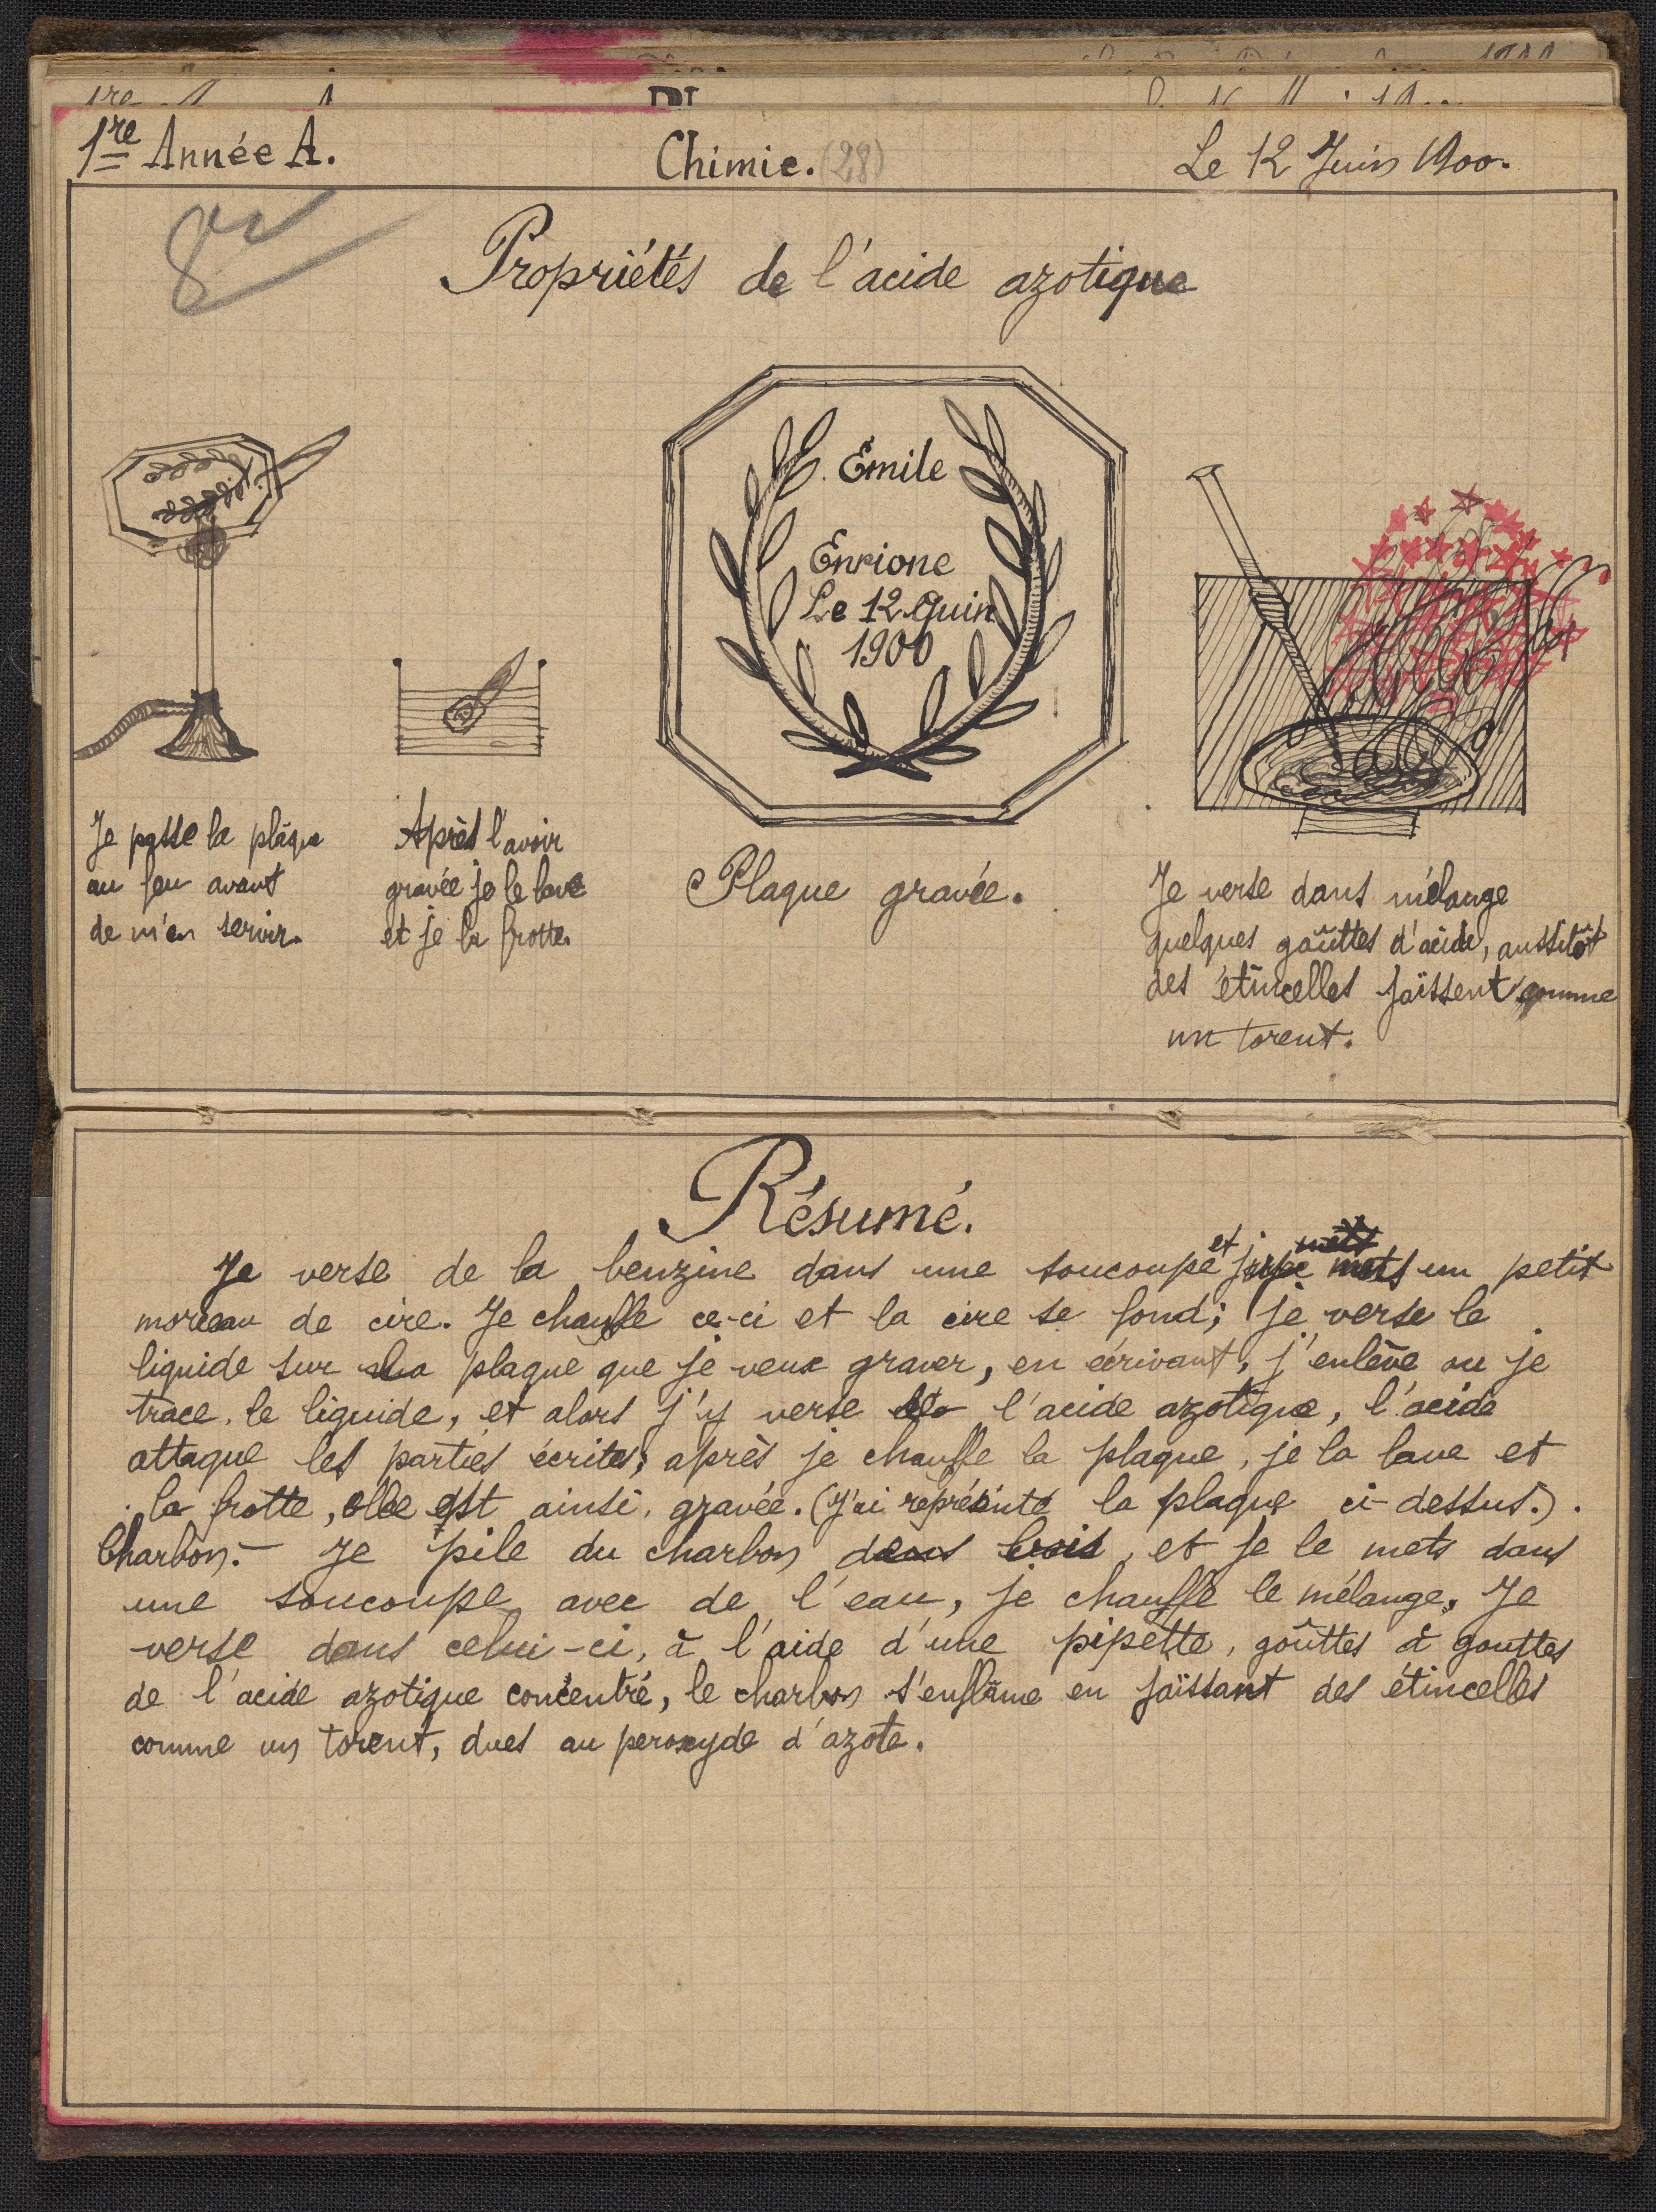 1re Année A.
Chimie. (28)
Le 12 Juin 1900.
8
Propriétés de l'acide azotique
Émile
Enrione
Le 12 Juin
1900
Je passe la plaque
au feu avant
de m'en servir.
Après l'avoir
gravée je le lave
et je la frotte.
Plaque gravée.
Je verse dans mélange
quelques goûttes d'acide, aussitôt
des étincelles jaïssent comme
un torent.
Résumé.
Je verse de la benzine dans une soucoupe et j'y mets un petit
morceau de cire. Je chauffe ce-ci et la cire se fond; je verse le
liquide sur la plaque que je veux graver, en écrivant, j'enlève ou je
trace le liquide, et alors j'y verse l'acide azotique, l'acide
attaque les parties écrites; après je chauffe la plaque, je la lave et
la frotte, elle est ainsi gravée. (J'ai représenté la plaque ci-dessus.).
Charbon.- Je pile du charbon dans bois, et je le mets dans
une soucoupe avec de l'eau, je chauffe le mélange. Je
verse dans celui-ci, à l'aide d'une pipette, goûttes à gouttes
de l'acide azotique concentré, le charbon s'enflâme en jaïssant des étincelles
comme un torent, dues au peroxyde d'azote.